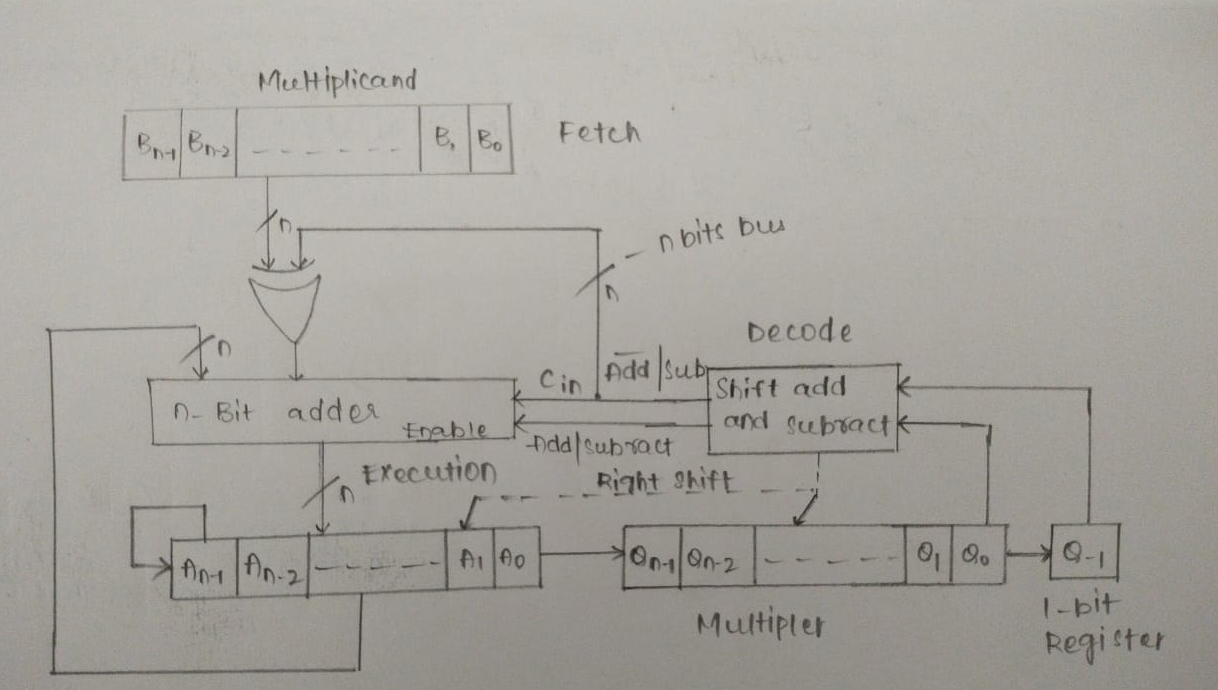 Multiplicand
Bn-1 Bn-2 B1 B0 Fetch
n
n bits bus
n
n
Decode
Cin Add/sub
Shift add
and subract
n-Bit adder
Enable
Add/subract
Execution
n
Right shift
An-1 An-2 A1 A0
Qn-1 Qn-2 Q1 Q0
Q-1
Multipler
1-bit
Register